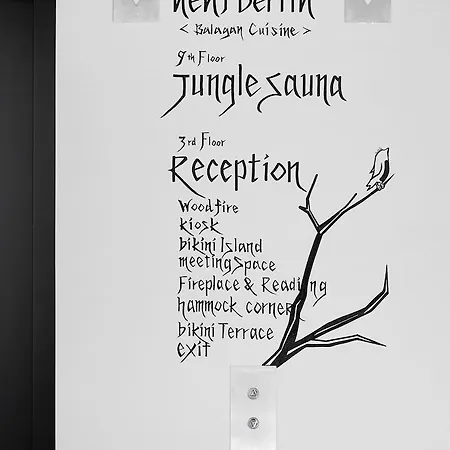 neni Berlin
< Balagan Cuisine >
9th Floor
Jungle Sauna
3rd Floor
Reception
Woodfire
kiosk
bikini Island
meeting Space
Fireplace & Reading
hammock corner
bikini Terrace
exit